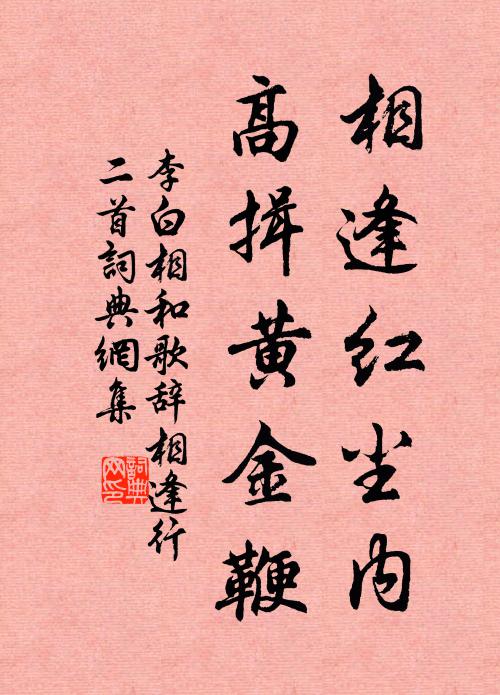 相逢红尘内
高揖黄金鞭
李白相和歌辞相逢行
二首詞典網集
詞典网印